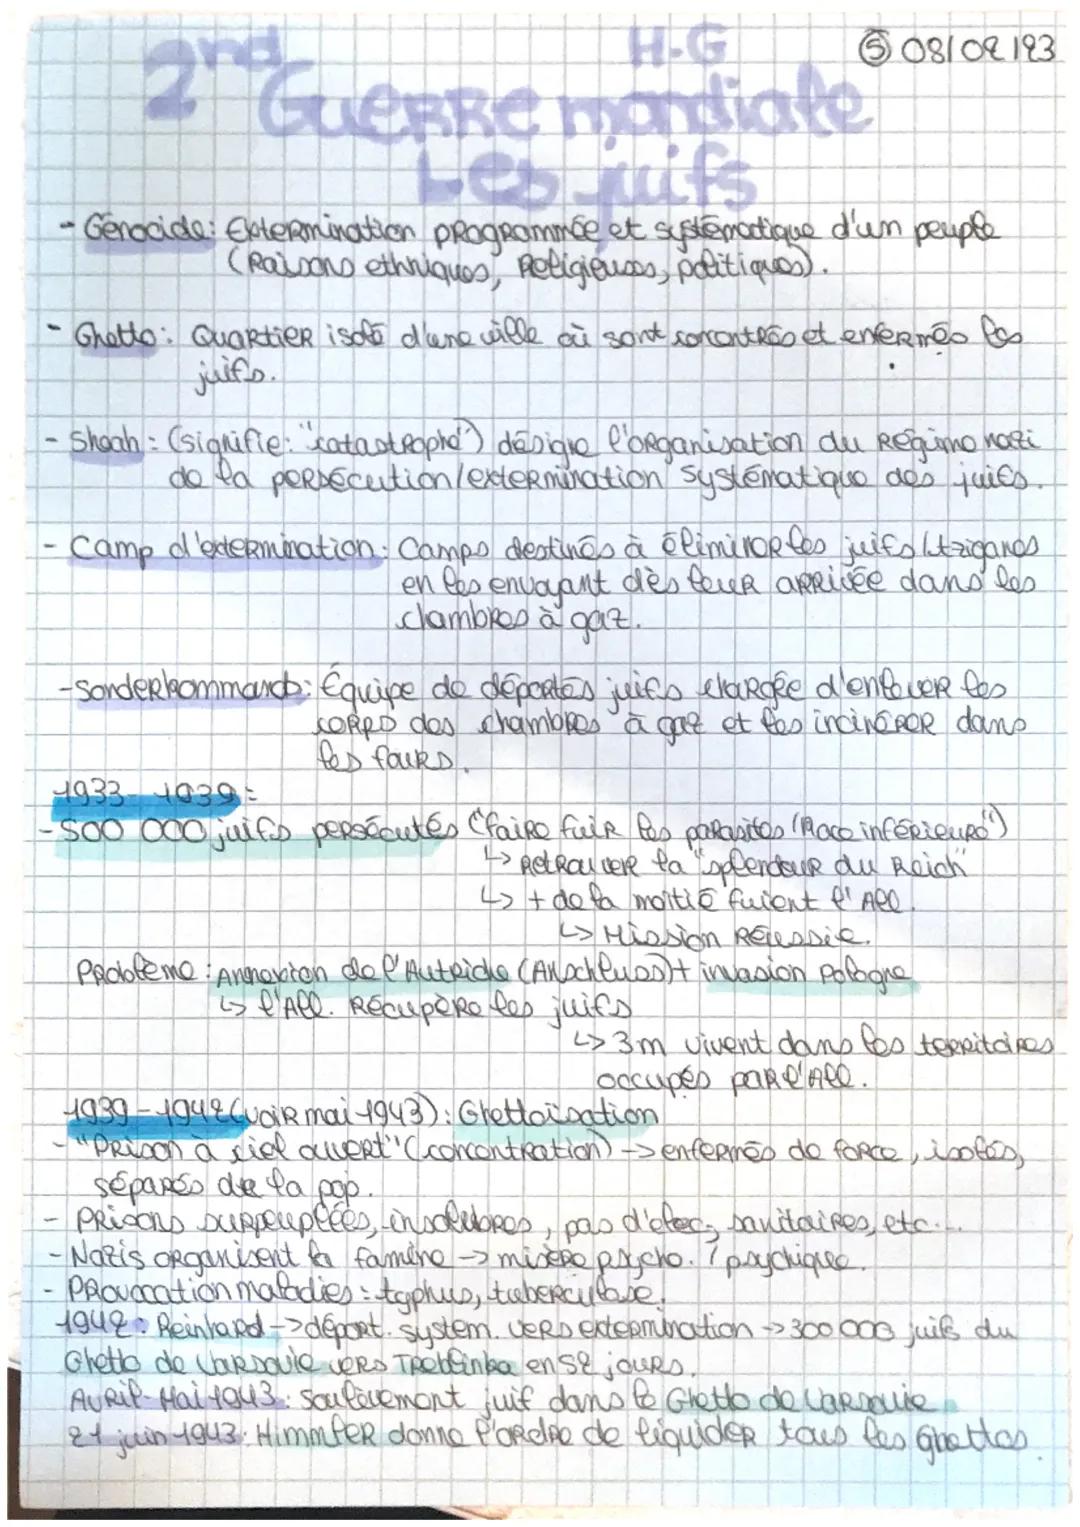 H-G
⑤ 08/02/23
2nd Guerre mondiale
Les juifs
- Génocide: Extermination programmée et systématique d'un peuple
(Raisons ethniques, Religieuses, politiques).
- Ghetto: Quartier isolé d'une ville où sont concentrés et enfermés les
juifs.
- Shoah: (signifie: "catastrophe") désigne l'organisation du Régime nazi
de la persécution/extermination systématique des juifs.
- Camp d'extermination: Camps destinés à éliminer les juifs/tziganes
en les envoyant dès leur arrivée dans les
chambres à gaz.
- Sonderkommando: Équipe de déportés juifs chargée d'enlever les
corps des chambres à gaz et les incinérer dans
les fours.
1933-1939:
- 500 000 juifs persécutés ("faire fuir les parasites/Race inférieure")
↳ Retrouver la "splendeur du Reich"
↳ + de la moitié fuient l'All.
↳ Mission Réussie.
Problème: Annexion de l'Autriche (Anschluss) + invasion Pologne
↳ l'All. Récupère les juifs
↳ 3m vivent dans les territoires
occupés par l'All.
1939-1942 (voir mai 1943): Ghettoïsation
- "Prison à ciel ouvert" (concentration) → enfermés de force, isolés,
séparés de la pop.
- Prisons surpeuplées, insalubres, pas d'elec, sanitaires, etc...
- Nazis organisent la famine → misère psycho. / psychique.
- Provocation maladies: typhus, tuberculose.
1942: Reinhard → déport. system. vers extermination → 300 000 juifs du
Ghetto de Varsovie vers Treblinka en 52 jours.
Avril-Mai 1943: Soulèvement juif dans le Ghetto de Varsovie
21 juin 1943: Himmler donne l'ordre de liquider tous les Ghettos.